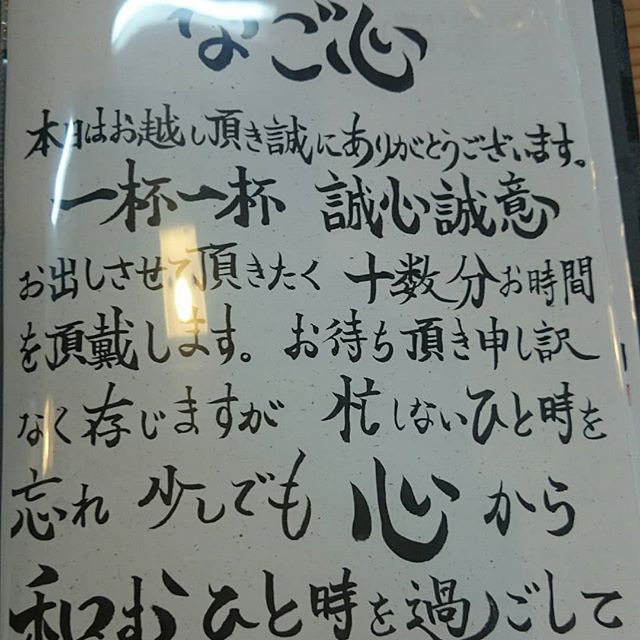 なご心
本日はお越し頂き誠にありがとうございます。
一杯一杯 誠心誠意
お出しさせて頂きたく 十数分お時間
を頂戴します。 お待ち頂き申し訳
なく存じますが 忙しないひと時を
忘れ 少しでも 心から
和むひと時を過ごして